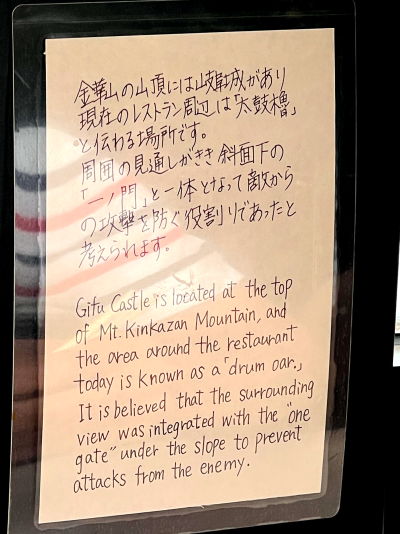 金華山の山頂には岐阜城があり
現在のレストラン周辺は「太鼓櫓」
と伝わる場所です。
周囲の見通しがきき斜面下の
「一ノ門」と一体となって敵から
の攻撃を防ぐ役割りであったと
考えられます。
Gifu Castle is located at the top
of Mt. Kinkazan Mountain, and
the area around the restaurant
today is known as a「drum oar.」
It is believed that the surrounding
view was integrated with the "one
gate" under the slope to prevent
attacks from the enemy.